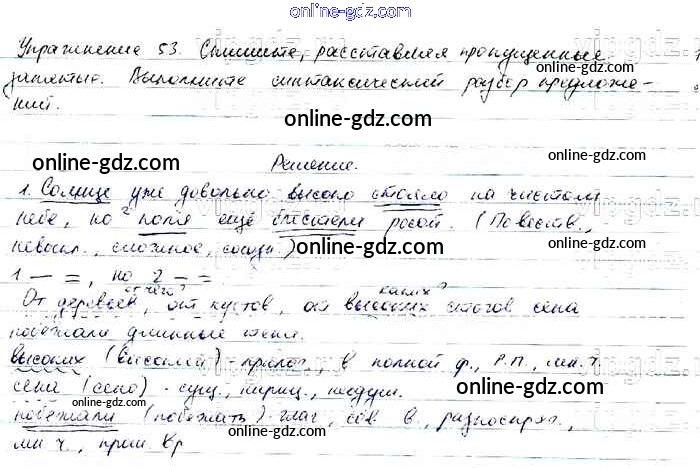 online-gdz.com
Упражнение 53. Спишите, расставляя пропущенные
запятые. Выполните синтаксический разбор предложе-
ний.
online-gdz.com
online-gdz.com
online-gdz.com
Решение.
1. Солнце уже довольно высоко стояло на чистом
небе, но ² поля ещё блестели росой. (Повеств.,
online-gdz.com
невоскл., сложное, союзн.)
online-gdz.com
1 — =, но 2 — =
от чего? каких?
От деревьев, от кустов, от высоких стогов сена
побежали длинные тени.
online-gdz.com
высоких (высокий) - прилаг., в полной ф., Р.П., мн. ч.
сена (сено) - сущ., нариц., неодуш.
online-gdz.com
побежали (побежать) - глаг., сов. в., разноспряг.,
online-gdz.com
мн. ч., прош. вр
online-gdz.com